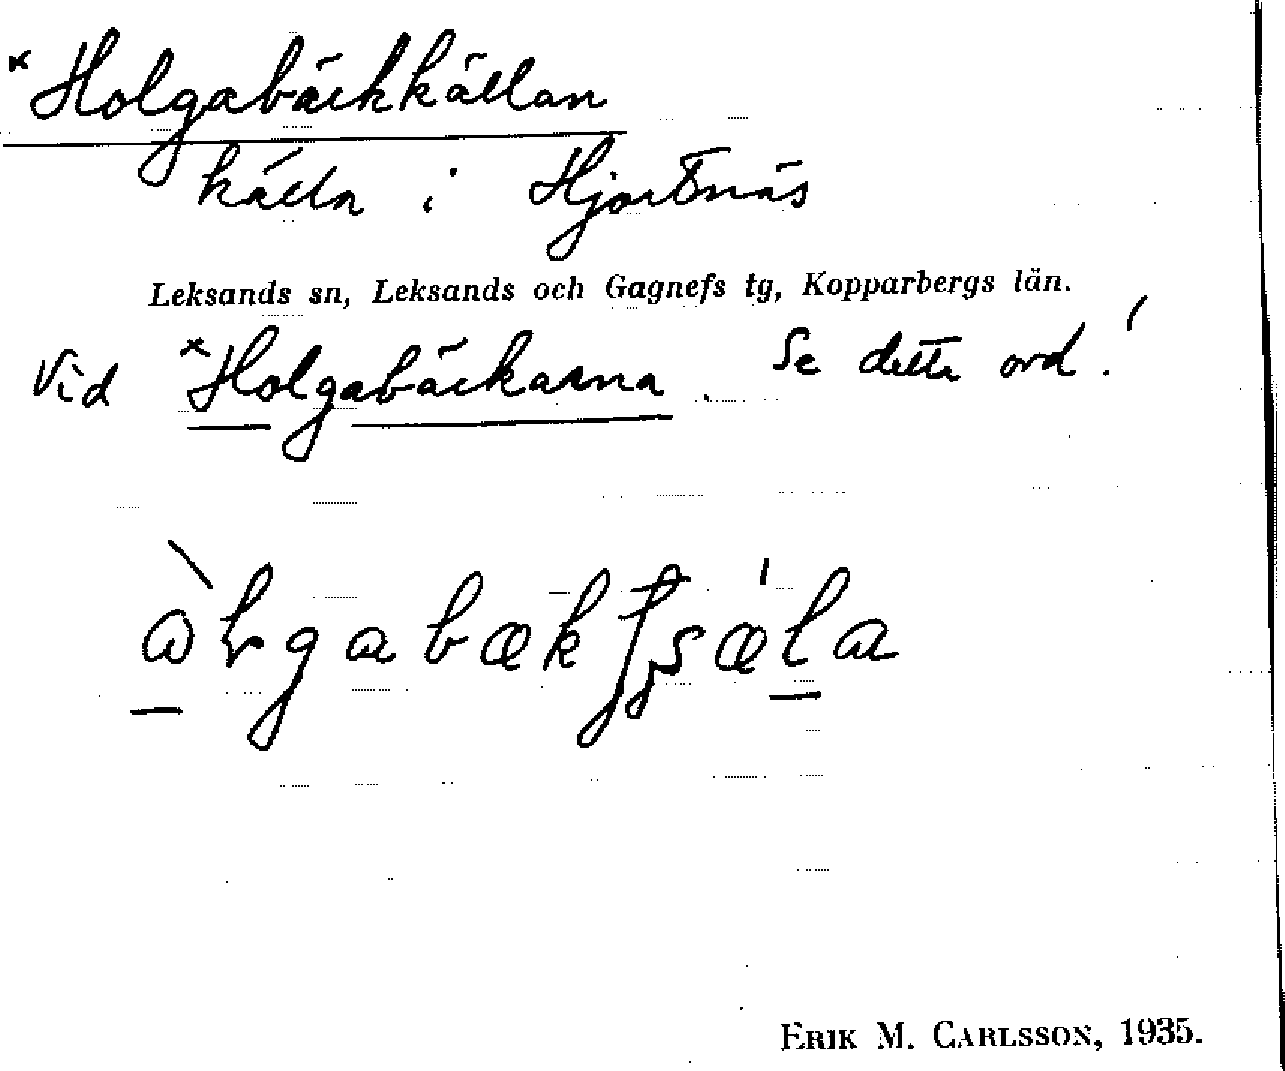 *Holgabäckkällan
källa i Hjortnäs
Leksands sn, Leksands och Gagnefs tg, Kopparbergs län.
Vid *Holgabäckarna. Se detta ord!
ERIK M. CARLSSON, 1935.